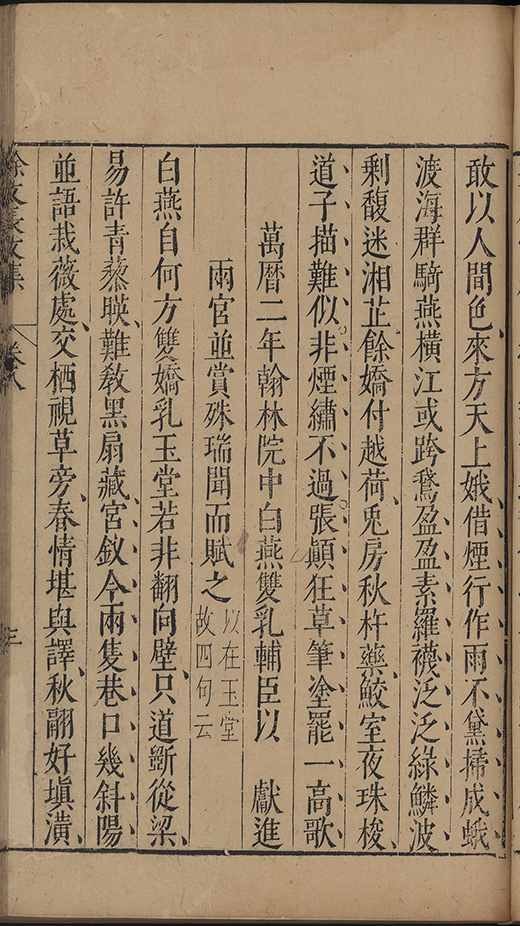 敢以人間色、來方天上娥、借煙行作雨、不黛掃成蛾、
渡海群騎燕、橫江或跨鵞、盈盈素羅襪、泛泛綠鱗波、
剩馥迷湘芷、餘嬌付越荷、兎房秋杵藥、鮫室夜珠梭、
道子描難似、非煙繡不過、張顛狂草筆、塗罷一高歌
萬曆二年翰林院中白燕雙乳輔臣以 獻進
兩宮並賞殊瑞聞而賦之 以在玉堂故四句云
白燕自何方、雙嬌乳玉堂、若非翻向壁、只道斷從梁、
易許青藜暎、難敎黑扇藏、宮釵今兩隻、巷口幾斜陽
並語栽薇處、交栖視草旁、春情堪與譯、秋翮好塡潢、
徐文長文集 卷八 三